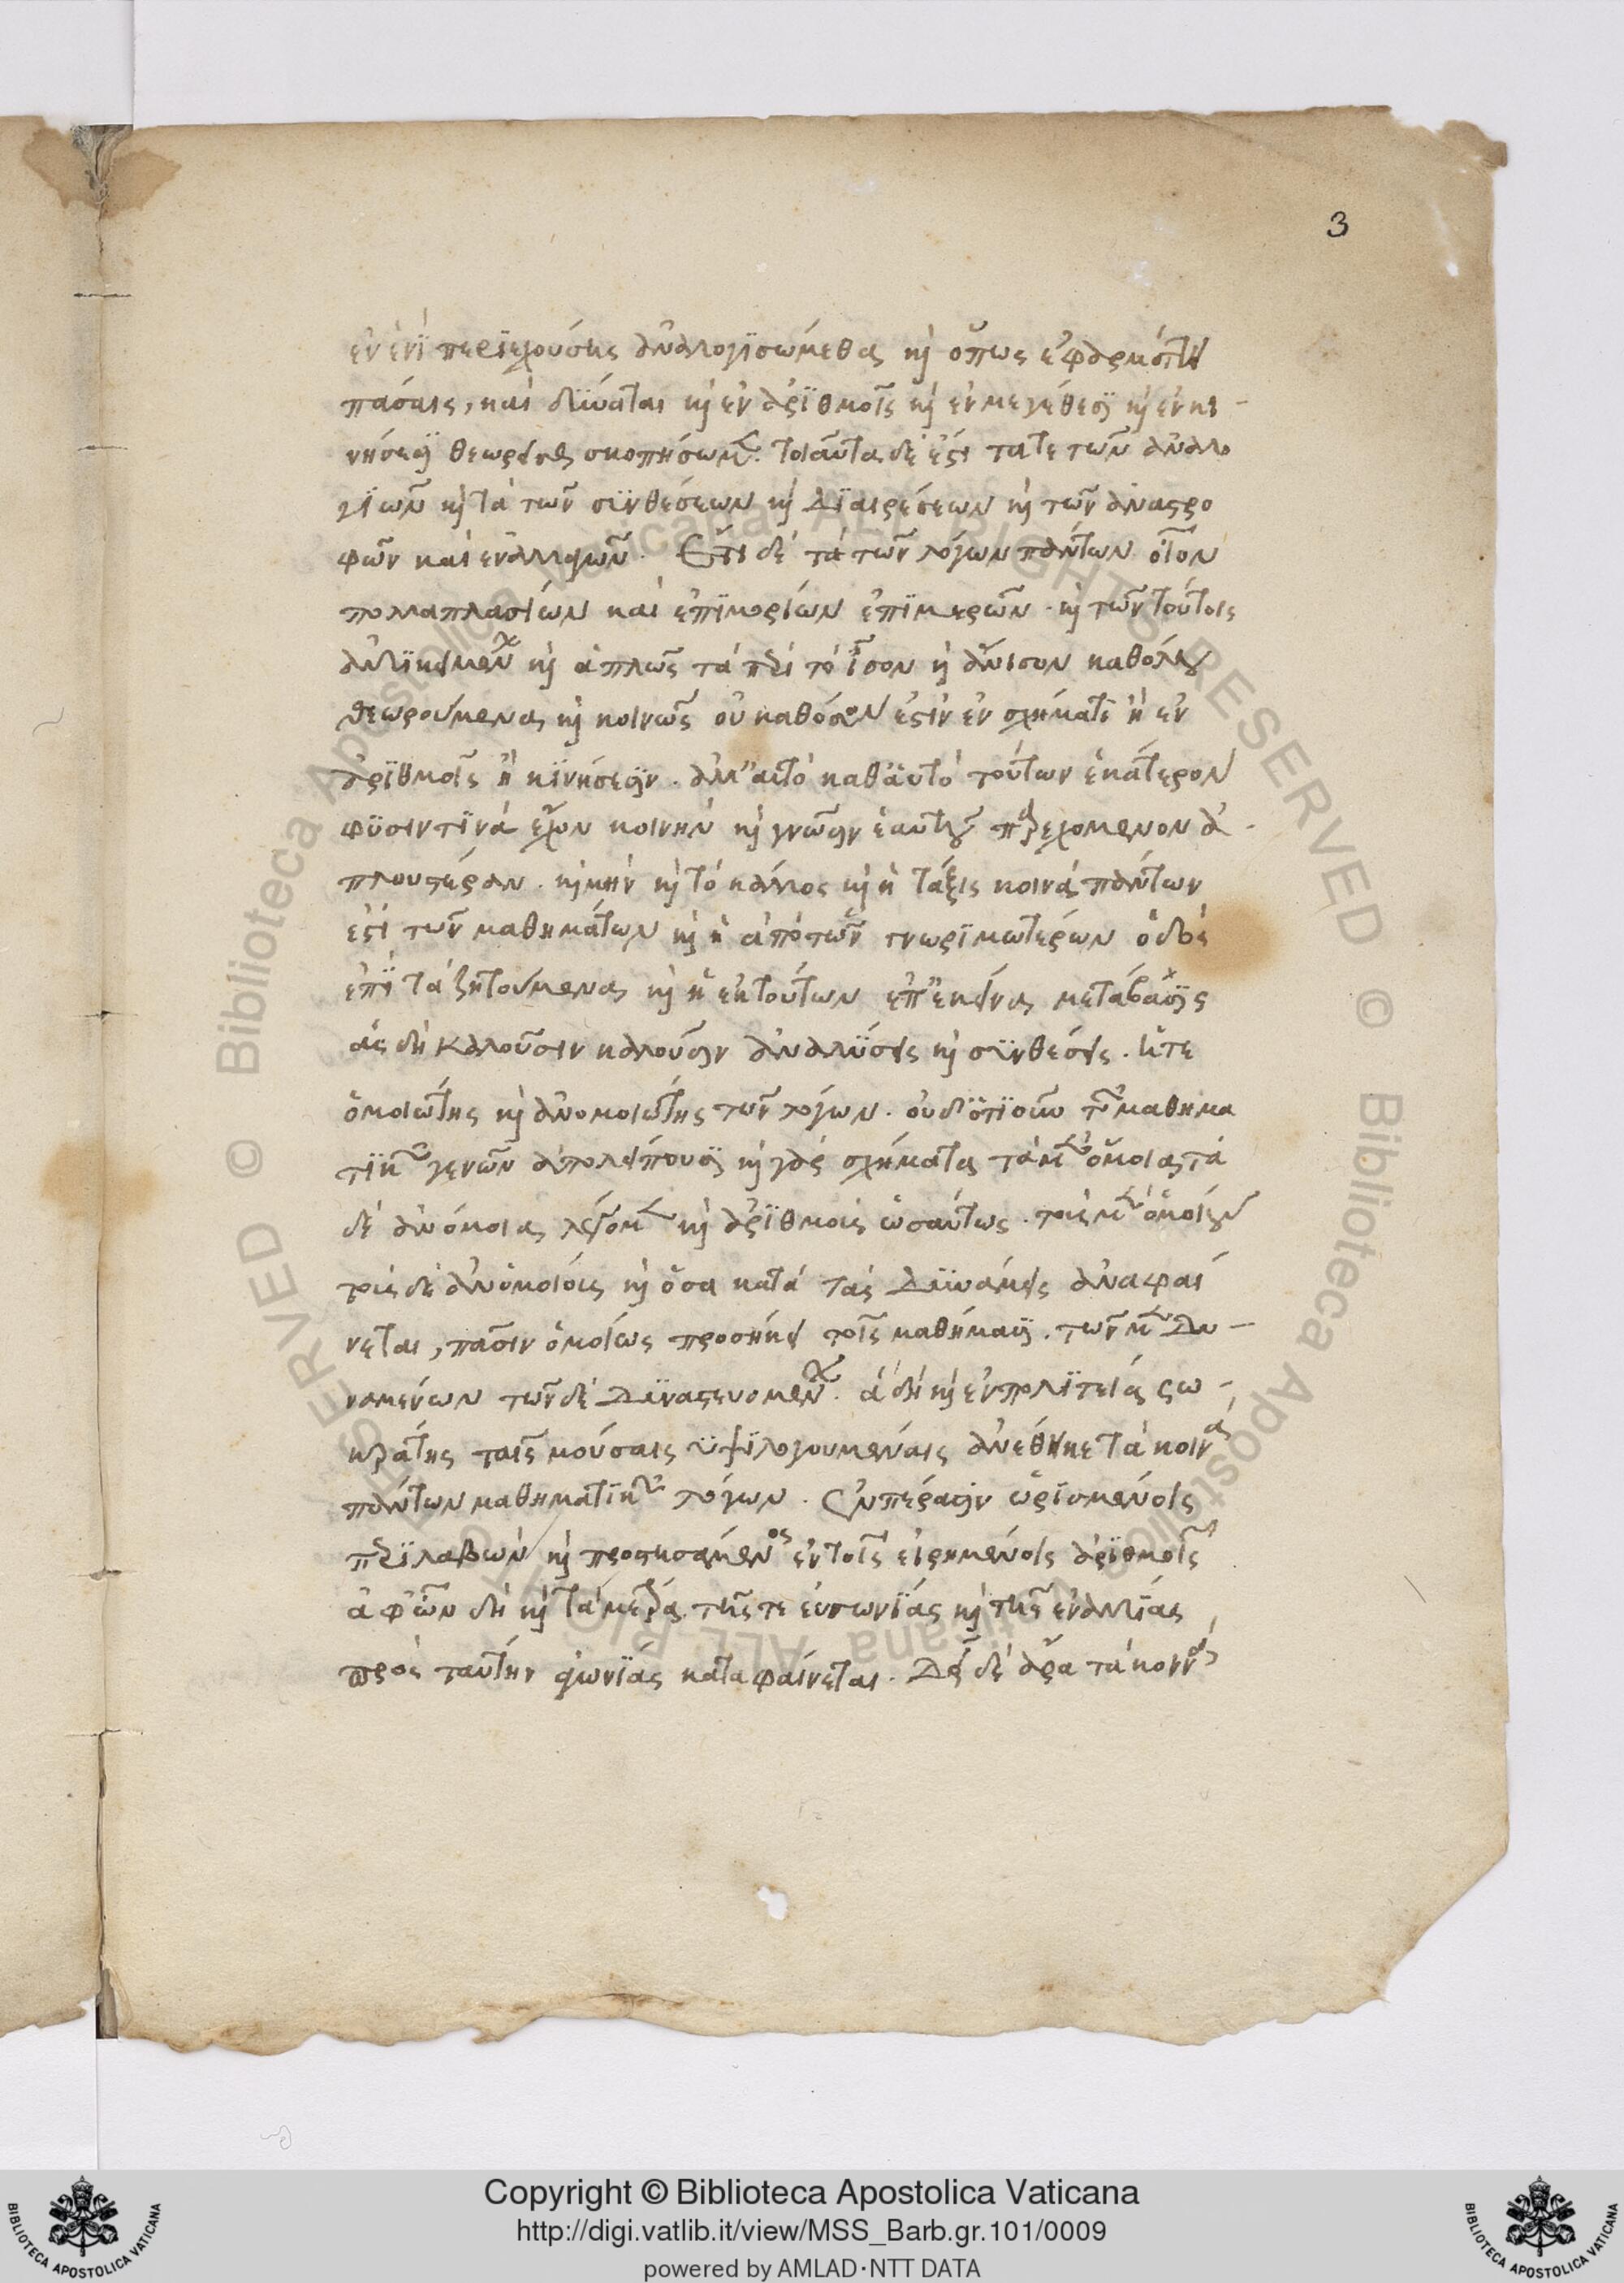 3
ἐν ἑνὶ περιεχούσης ἀναλογϊσώμεθα, κὶ ὅπως ἐφαρμόττει
πάσαις, καὶ δύναται κὶ ἐν ἀρϊθμοῖς κὶ ἐν μεγέθεσϊ κὶ ἐν κι-
νήσεσϊ θεωρεῖσθαι σκοπήσωμεν. τοιαῦτα δέ ἐστι τά τε τῶν ἀναλο
γϊῶν κὶ τὰ τῶν συνθέσεων κὶ διαιρέσεων κὶ τῶν ἀναστρο
φῶν καὶ ἐναλλαγῶν. Ἔτι δὲ τὰ τῶν λόγων πάντων οἷον
πολλαπλασίων καὶ ἐπϊμορίων ἐπϊμερῶν. κὶ τῶν τούτοις
ἀντϊκειμένων κὶ ἁπλῶς τὰ περὶ τὸ ἴσον κὶ ἄνισον καθόλου
θεωρούμενα, κὶ κοινῶς οὐ καθόσον ἐστὶν ἐν σχήματι ἢ ἐν
ἀρϊθμοῖς ἢ κϊνήσεσϊν. ἀλλ' αὐτὸ καθ' αὑτὸ τούτων ἑκάτερον
φύσιν τϊνὰ ἔχον κοινὴν κὶ γνῶσιν ἑαυτοῦ παρεχόμενον ἁ-
πλουστέραν. κὶ μὴν κὶ τὸ κάλλος κὶ ἡ τάξις κοινὰ πάντων
ἐστὶ τῶν μαθημάτων κὶ ἡ ἀπὸ τῶν γνωρϊμωτέρων ὁδὸς
ἐπὶ τὰ ζητούμενα, κὶ ἡ ἐκ τούτων ἐπ' ἐκεῖνα μετάβασϊς
ἃς δὴ καλοῦσιν καλοῦσιν ἀναλύσεις κὶ συνθέσεις. ἥτε
ὁμοιότης κὶ ἀνομοιότης τῶν λόγων. οὐδ' ὁτϊοῦν τῶν μαθημα
τϊκῶν γενῶν ἀπολείπουσϊ κὶ γὰρ σχήματα, τὰ μὲν ὅμοια, τὰ
δὲ ἀνόμοια, λέγομεν κὶ ἀρϊθμοὶς ὡσαύτως. τοὶς μὲν ὁμοίους
τοὶς δὲ ἀνομοίοις κὶ ὅσα κατὰ τὰς Δυνάμεις ἀναφαί
νεται, πᾶσιν ὁμοίως προσήκει τοῖς μαθήμασϊ. τῶν μὲν Δυ-
ναμένων τῶν δὲ Δυναστευομένων. ἃ δὴ κὶ ἐν πολϊτείᾳ σω-
κράτης ταῖς μούσαις ὑψϊλογουμέναις ἀνέθηκε τὰ κοινὰ
πάντων μαθηματϊκῶν λόγων. ἐν πέρασϊν ὡρϊσμένοις
περϊλαβὼν κὶ προστησάμενος ἐν τοῖς εἰρημένοις ἀρϊθμοῖς
ἀφ' ὧν δὴ κὶ τὰ μέτρα, τῆς τε εὐγωνϊάς κὶ τῆς ἐναντίας
πρὸς ταύτην γωνϊάς καταφαίνεται. Δεῖ δὲ ἄρα τὰ κοινὰ
Copyright © Biblioteca Apostolica Vaticana
http://digi.vatlib.it/view/MSS_Barb.gr.101/0009
powered by AMLAD·NTT DATA